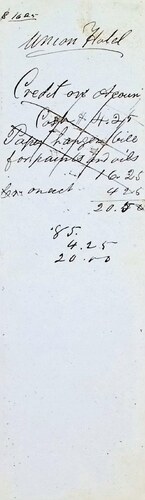 $ 16.25
Union Hotel
Credit on acoun
Cash $ 4.25
Paper hangers bill
for paints and oils
16 25
on acct 4 25
20.50
.85.
4.25
20.00